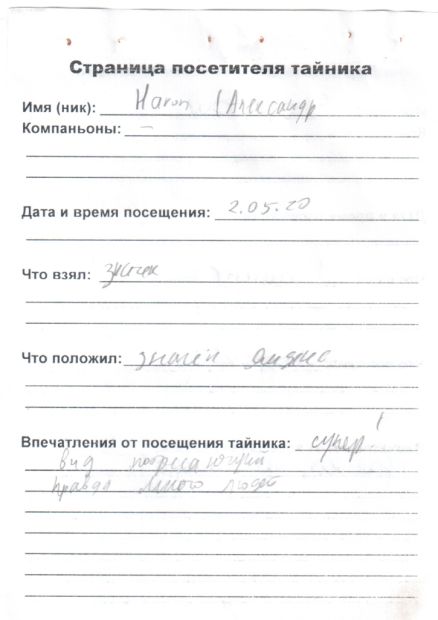 Страница посетителя тайника
Имя (ник): Haron (Александр
Компаньоны: —
Дата и время посещения: 2.05.20
Что взял: значек
Что положил: значек Яндекс
Впечатления от посещения тайника: супер!
вид потрясающий
правда много людей